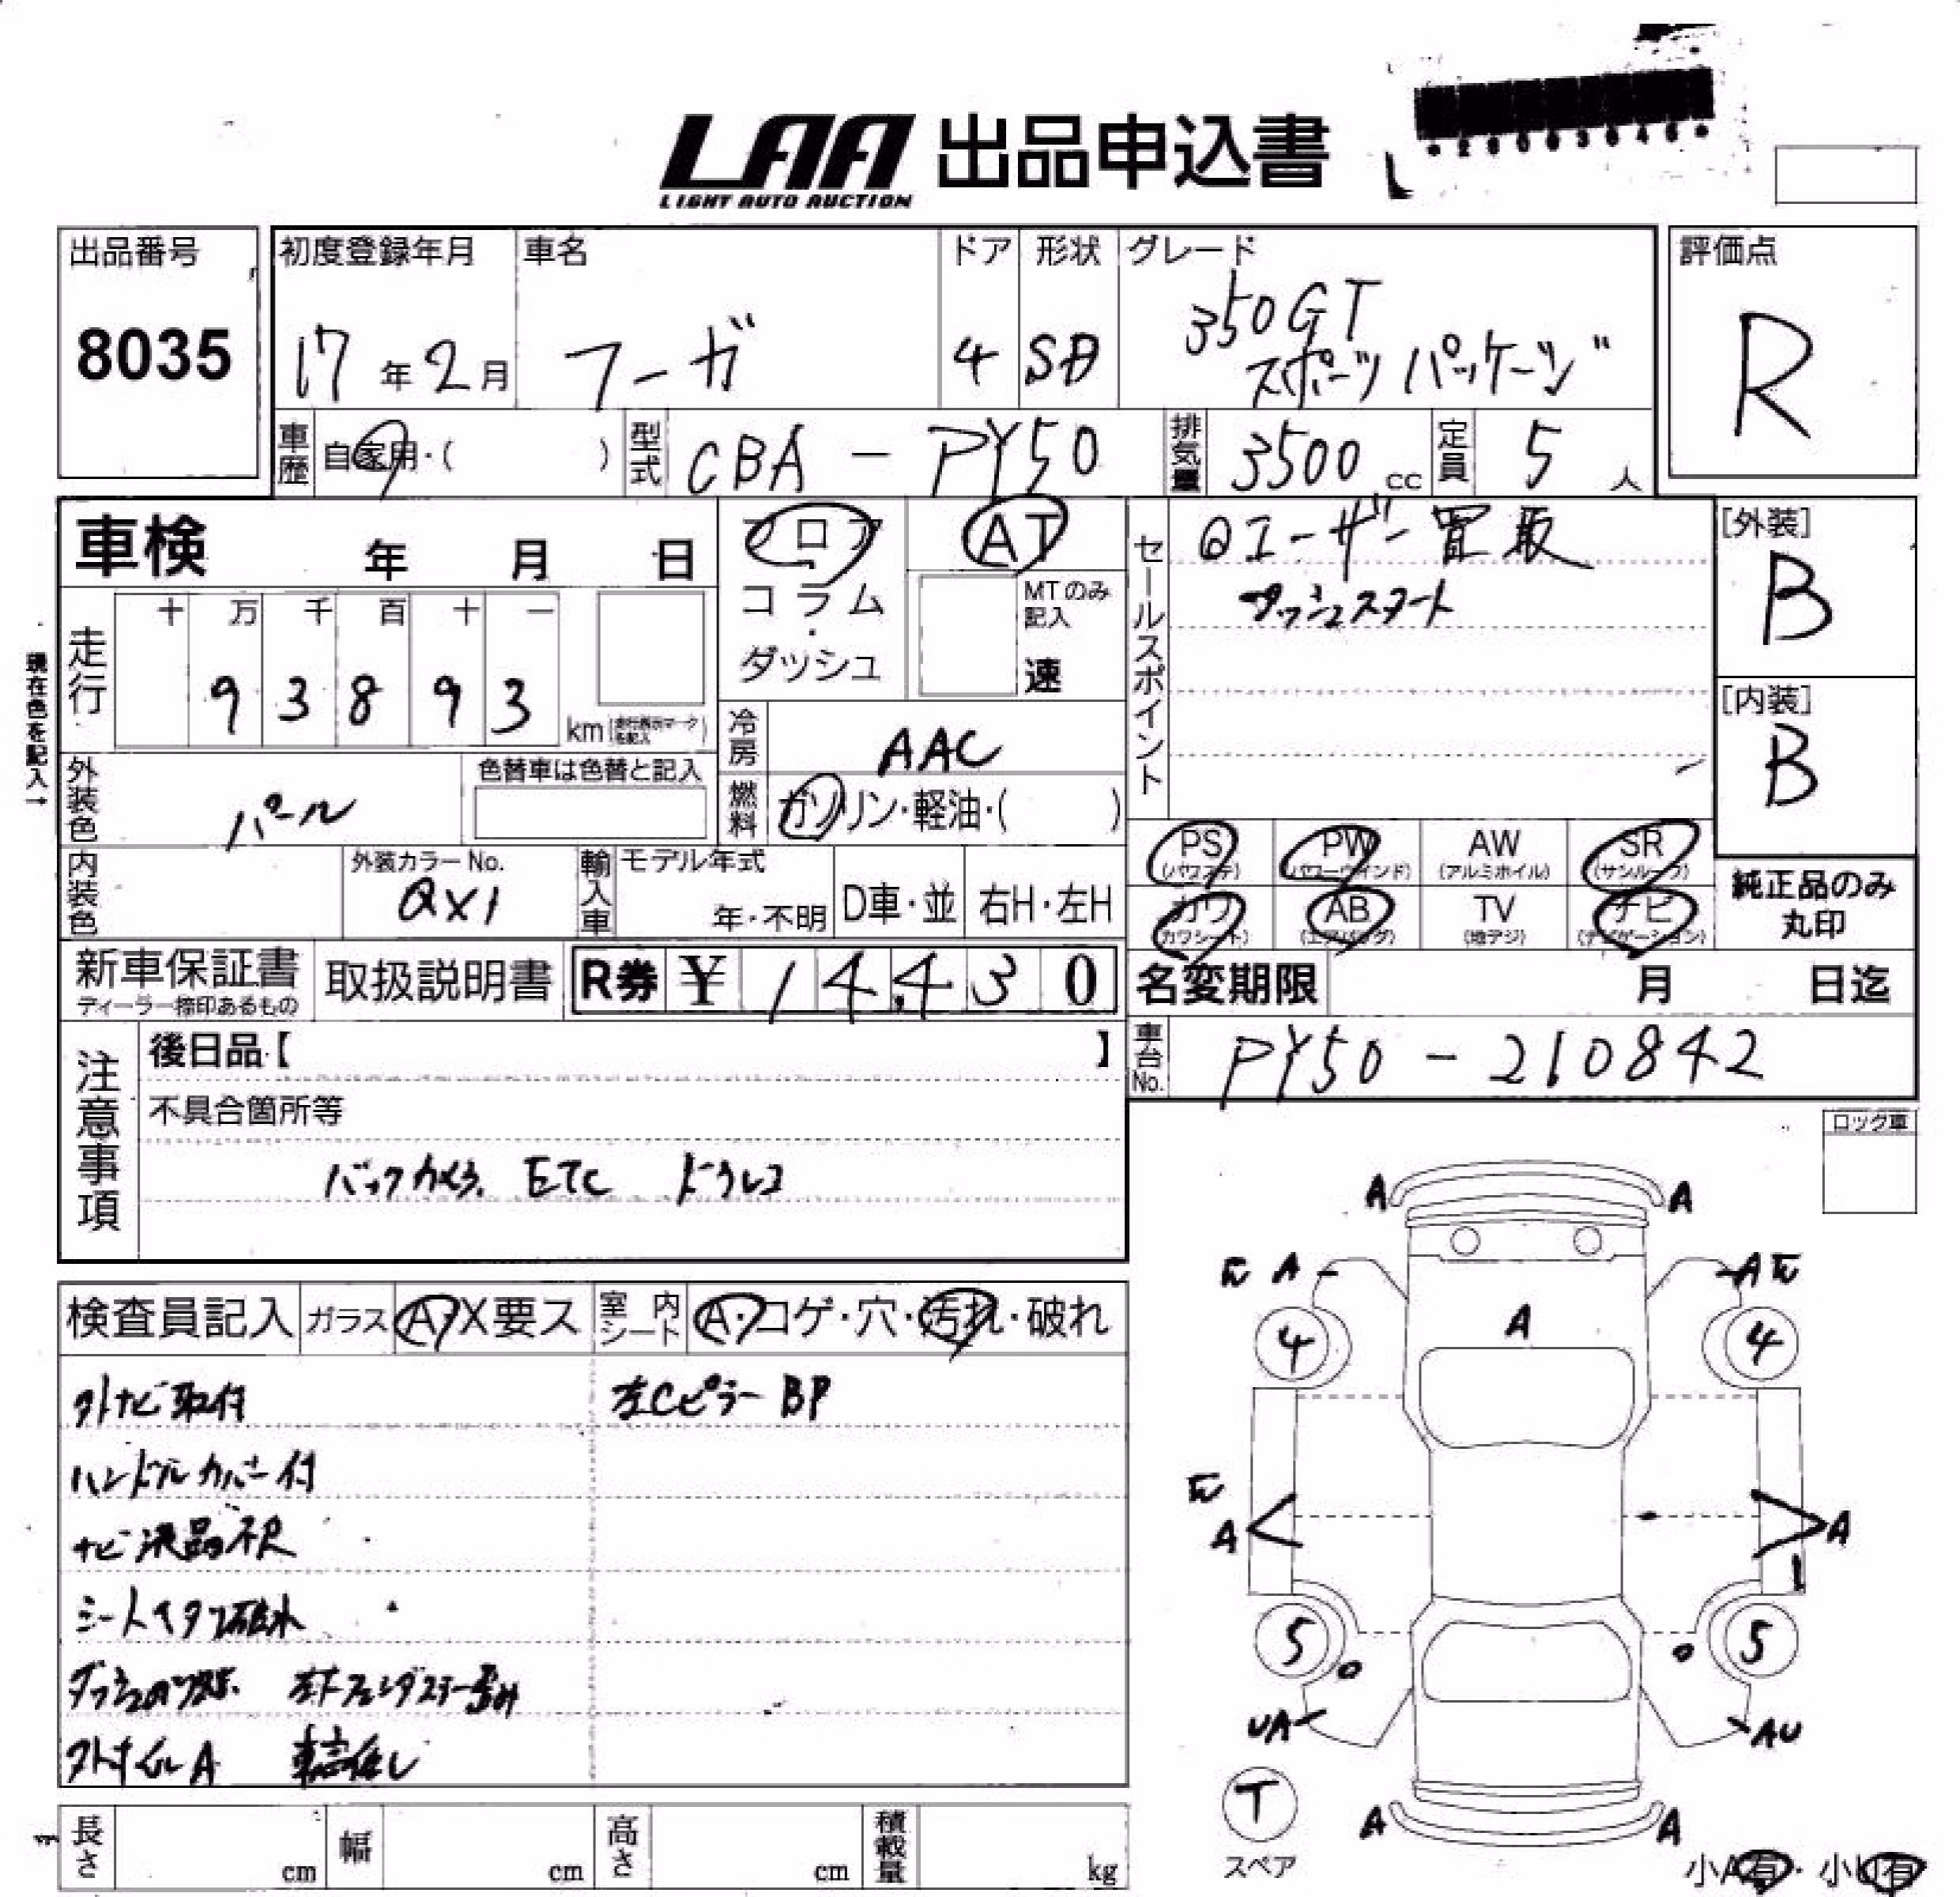 LAA 出品申込書
LIGHT AUTO AUCTION
出品番号
8035
初度登録年月 車名 ドア 形状 グレード
17年2月 フーガ 4 SD 350GT
スポーツ パッケージ
評価点
R
車歴 自家用・( ) 型式 CBA - PY50 排気量 3500 cc 定員 5 人
車検 年 月 日
フロア
コラム
・
ダッシュ
AT
MTのみ
記入
速
セールスポイント
ユーザー買取
プッシュスタート
[外装]
B
[内装]
B
現在色を記入→
走行 十 万 千 百 十 一
9 3 8 9 3
km
冷房 AAC
燃料 ガソリン・軽油・( )
外装色 パール
色替車は色替と記入
内装色
外装カラーNo.
QX1
輸入車 モデル年式
年・不明 D車・並 右H・左H
PS PW AW SR
(パワステ) (パワーウインド) (アルミホイル) (サンルーフ)
カワ AB TV ナビ
(カワシート) (エアバッグ) (地デジ) (ナビゲーション)
純正品のみ
丸印
新車保証書
ディーラー捺印あるもの
取扱説明書
R券 ¥ 14,430
名変期限 月 日迄
車台No. PY50 - 210842
注意事項
後日品【 】
不具合箇所等
バックカメラ. ETC ドラレコ
ロック車
検査員記入 ガラス A・X要ス 室内シート A・コゲ・穴・汚れ・破れ
外ナビ取付
左Cピラー BP
ハンドルカバー付
ナビ液晶不良
シートイタミ破れ
アルミA 車高低し
A A
A A
A
4 4
A A
5 5
UA AU
T
スペア
A A
小A有・小U有
長さ cm 幅 cm 高さ cm 積載量 kg